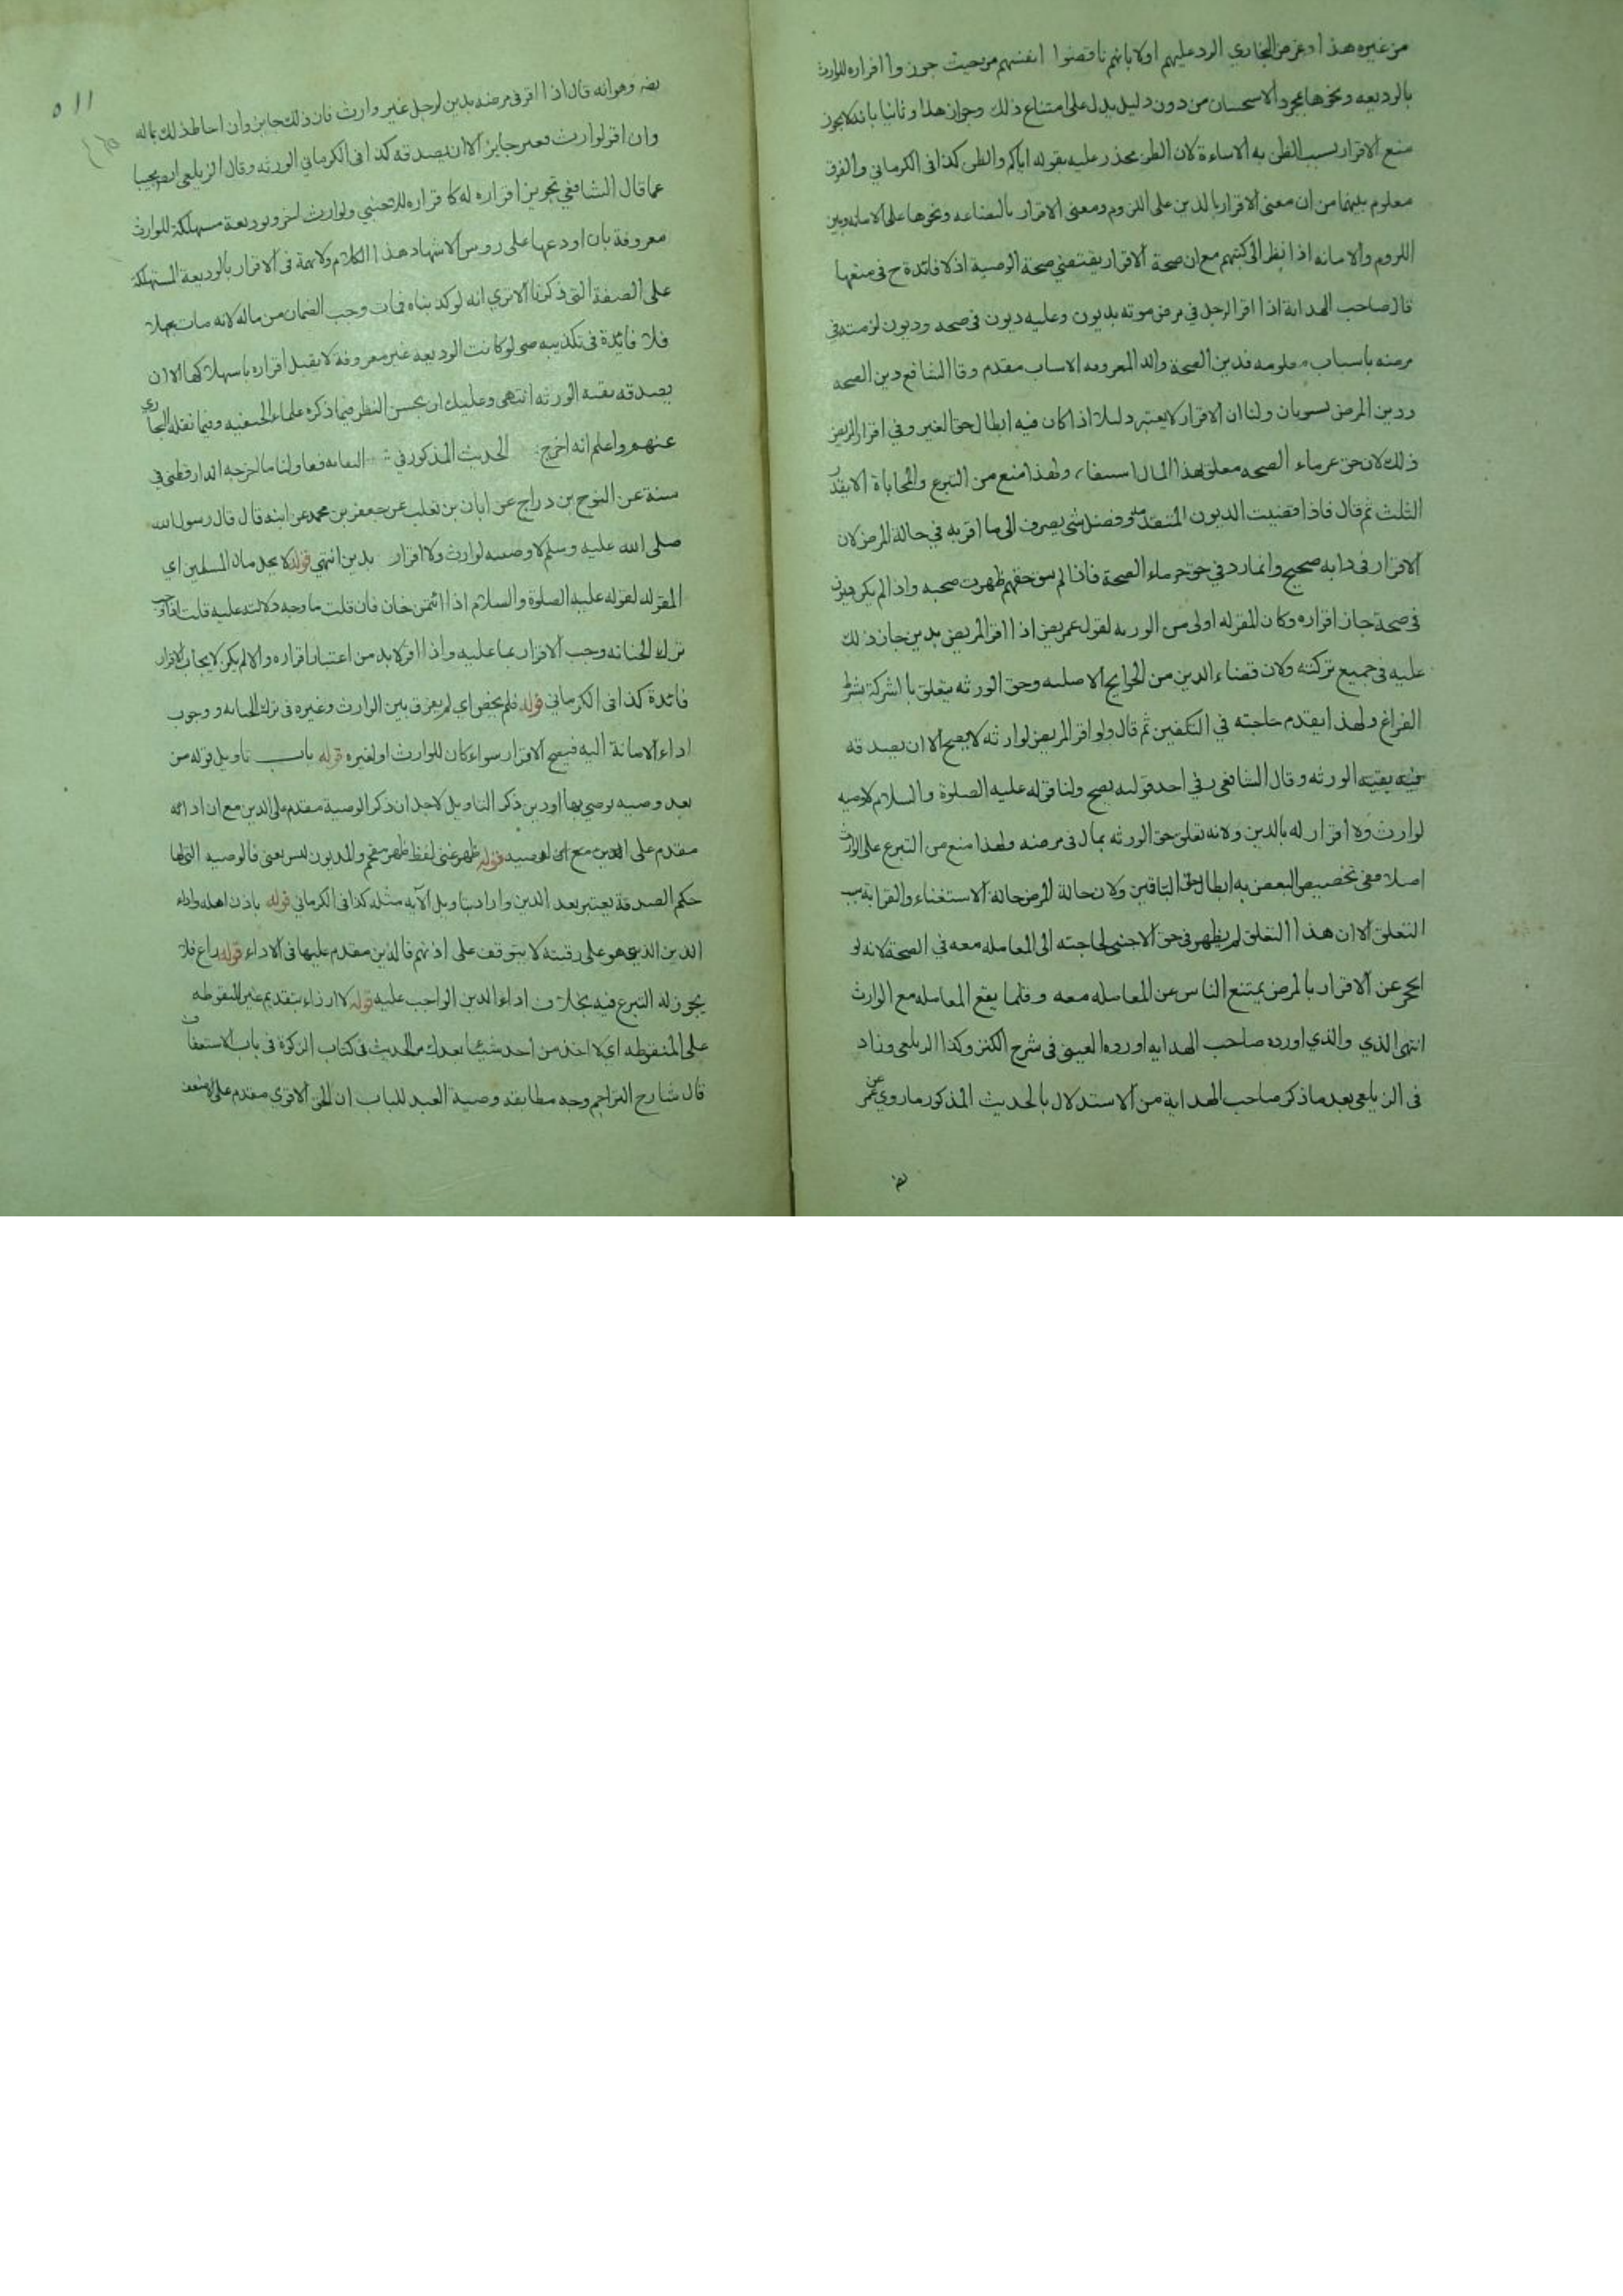 من غيره هذا وغرض البخاري الرد عليهم اولا بانهم ناقضوا انفسهم من حيث جوزوا اقراره للوارث
بالوديعه ونحوها بمجرد الاستحسان من دون دليل يدل على امتناع ذلك وجواز هذا وثانيا بانه لا يجوز
منع الاقرار بسبب الظن به الاساءة لان الظن محذر عليه بقوله اياكم والظن كذا فى الكرماني والفرق
معلوم بينهما من ان معنى الاقرار بالدين على اللزوم ومعنى الاقرار بالبضاعه ونحوها على الامانه وبين
اللزوم والامانه اذا نظر الى كتبهم مع ان صحة الاقرار يقتضي صحة الوصية اذ لا فائدة ح فى منعها
قال صاحب الهداية اذا اقر الرجل في مرض موته بديون وعليه ديون فى صحته وديون لزمته فى
مرضه باسباب معلومه فدين الصحة والد المعروفه الاسباب مقدم وقال الشافع دين الصحه
ودين المرض يسويان ولنا ان الاقرار لا يعتبر دليلا اذا كان فيه ابطال حق الغير وفي اقرار المريض
ذلك لان حق غرماء الصحه معلق بهذا المال استيفاء ولهذا منع من التبرع والمحاباة الا بقدر
الثلث ثم قال فاذا قضيت الديون المتقدمه وفضل شي يصرف الى ما اقر به في حالة المرض لان
الاقرار فى ذاته صحيح وانما رد في حق غرماء الصحة فاذا لم يبق حقهم ظهرت صحته واذا لم يكن ديون
فى صحته جاز اقراره وكان المقر له اولى من الورثه لقول عمر رض اذا اقر المريض بدين جاز ذلك
عليه فى جميع تركته ولان قضاء الدين من الحوايج الاصليه وحق الورثه يتعلق بالتركة بشرط
الفراغ ولهذا يقدم حاجته في التكفين ثم قال ولو اقر المريض لوارثه لا يصح الا ان يصدقه
فيه بقيه الورثه وقال الشافعى رفي احد قوليه يصح ولنا قوله عليه الصلوة والسلام لا وصيه
لوارث ولا اقرار له بالدين ولانه تعلق حق الورثه بمال فى مرضه ولهذا منع من التبرع على الوارث
اصلا ففى تخصيص البعض به ابطال حق الباقين ولان حالة المرض حالة الاستغناء والقرابة سبب
التعلق الا ان هذا التعلق لم يظهر فى حق الاجنبي لحاجته الى المعامله معه في الصحة لانه لو
انحجر عن الاقرار بالمرض يمتنع الناس عن المعامله معه وقلما يقع المعامله مع الوارث
انتهى الذي والذي اورده صاحب الهدايه اورده العينى فى شرح الكنز وكذا الزيلعى وزاد
فى الزيلعى بعد ما ذكر صاحب الهداية من الاستدلال بالحديث المذكور ما روي عن عمر
رض
٥١١
رض وهو انه قال اذا اقر فى مرضه بدين لرجل غير وارث فان ذلك جايز وان احاط ذلك بماله
وان اقر لوارث فغير جايز الا ان يصدقه كذا فى الكرماني الورثه وقال الزيلعى ايضا مجيبا
عما قال الشافعي تجويز اقراره له كاقراره للاجنبي ولوارث اخر وبوديعة مستهلكة للوارث
معروفة بان اودعها على روس الاشهاد هذا الكلام ولا تهمة فى الاقرار بالوديعة المستهلكة
على الصفة التى ذكرنا الا تري انه لو كذبناه فمات وجب الضمان من ماله لانه مات مجهلا
فلا فائدة فى تكذيبه حتى لو كانت الوديعه غير معروفة لا يقبل اقراره باستهلاكها الا ان
يصدقه بقيه الورثه انتهى وعليك ان يحسن النظر فيما ذكره علماء الحنفيه وفيما نقله البخاري
عنهم واعلم انه اخرج الحديث المذكور في النهايه فقال ولنا ما اخرجه الدارقطنى في
سننه عن النوح بن دراج عن ابان بن تغلب عن جعفر بن محمد عن ابيه قال قال رسول الله
صلى الله عليه وسلم لا وصيه لوارث ولا اقرار بدين انتهي قوله لا يحل مال المسلمين اي
المقر له لقوله عليه الصلوة والسلام اذا ائتمن خان فان قلت ما وجه دلالته عليه قلت اذا وجب
ترك الخيانه وجب الاقرار بما عليه واذا اقر لا بد من اعتبار اقراره والا لم يكن لايجاب الاقرار
فائدة كذا فى الكرماني قوله فلم يخص اي لم يفرق بين الوارث وغيره فى ترك الخيانه ووجوب
اداء الامانة اليه فيصح الاقرار سواء كان للوارث او لغيره قوله باب تاويل قوله من
بعد وصيه يوصي بها او دين ذكر التاويل لاجل ان ذكر الوصية مقدم على الدين مع ان اداءه
مقدم على الدين مع ان الوصيه قوله ظهر غنى لفظ ظهر مقحم والمديون ليس بغنى فالوصيه التى لها
حكم الصدقة يعتبر بعد الدين واراد بتاويل الآيه مثله كذا فى الكرماني قوله باذن اهله واداء
الدين الذي هو على رقبته لا يتوقف على اذنهم فالدين مقدم عليها فى الاداء قوله راع فلا
يجوز له التبرع فيه بخلاف اداء الدين الواجب عليه قوله لا ارزاء بتقديم غير المنقوطه
على المنقوطه اي لا اخذ من احد شيئا بعدك مر الحديث فى كتاب الزكوة فى باب الاستعفاف
قال شارح التراجم وجه مطابقه وصية العبد للباب ان الحق الاقوي مقدم على الاضعف